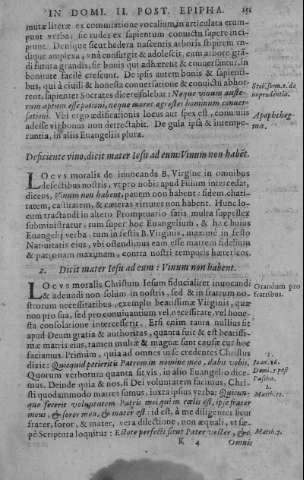 IN DOMI. II. POST. EPIPHA. 151
mutæ literæ ex commutatione vocalium, in articulata erum-
punt verba: sic rudes ex sapientum convictu sapere inci-
piunt. Denique sicut hedera nascentis arboris stipitem in-
dique amplexa, vnà consurgit & adolescit, cum arbore gran-
di futura grandis: sic bonis qui adhærent & conversantur, in
bonitate facilè crescunt. De ipsis autem bonis & sapienti-
bus, qui à civili & honesta conversatione & convictu abhor-
rent, sapienter Socrates dicere solebat: Neque vinum auste-
rum aptum esse potui, neque mores agrestes hominum conver-
sationi. Vbi ergo ædificationis locus aut spes est, convivis
adesse vir bonus non detrectabit. De gula ipsa & intempe-
rantia, in alijs Evangelijs plura.
Apophtheg-
ma.
Deficiente vino, dicit mater Iesu ad eum: Vinum non habēt.
Locvs moralis de invocanda B. Virgine in omnibus
defectibus nostris, vt pro nobis apud Filium intercedat,
dicens, Vinum non habent, panem non habent: fidem, chari-
tatem, castitatem, & cæteras virtutes non habent. Hunc lo-
cum tractandi in altero Promptuario satis multa suppellex
subministratur, tum super hoc Evangelium, & hæc huius
Euangelij verba, tum in festis B. Virginis, maximè in festo
Nativitatis eius, vbi ostendimus eam esse matrem fidelium
& patronam maximam, contra nostri temporis hæreticos.
2. Dicit mater Iesu ad eum: Vinum non habent.
Locvs moralis Christum Iesum fiducialiter invocandi
& adeundi non solùm in nostris, sed & in fratrum no-
strorum necessitatibus, exemplo beatissimæ Virginis, quæ
non pro sua, sed pro conviuantium vel necessitate, vel hone-
sta consolatione intercesserit. Etsi enim tanta nullius sit
apud Deum gratia & authoritas, quanta fuit & est beatissi-
mæ matris eius, tamen multæ & magnæ sunt causæ cur hoc
faciamus. Primùm, quia ad omnes suos credentes Christus
dixit: Quicquid petieritis Patrem in nomine meo, dabit vobis,
Quorum verborum quanta sit vis, in alio Euangelio dici-
mus. Deinde quia & nos, si Dei voluntatem facimus, Chri-
sti quodammodo mater sumus, iuxta ipsius verba: Quicun-
que fecerit voluntatem Patris mei qui in cælis est, ipse frater
meus, & soror mea, & mater est: id est, à me diligetur ceu
frater, soror, & mater, vera dilectione, non æquali, vt sæ-
pè Scriptura loquitur: Estote perfecti sicut Pater vester, &c.
Orandum pro
fratribus.
Ioan. 16.
Matth. 12.
Matth. 5.
K 4 Omnis